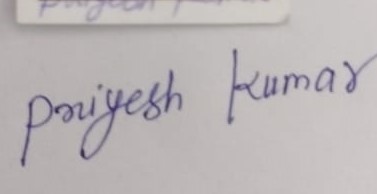 Priyesh Kumar